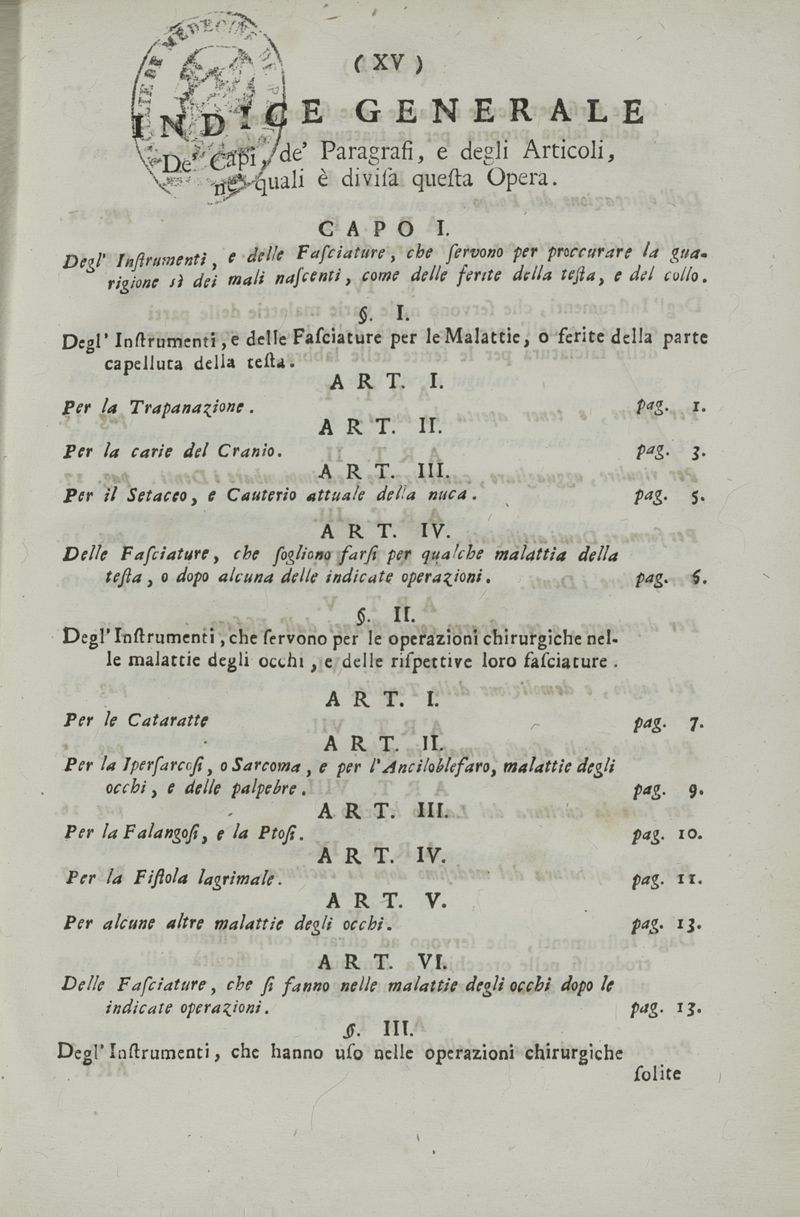 ( XV )
INDICE GENERALE
De' Capi, de' Paragrafi, e degli Articoli,
ne' quali è diviſa queſta Opera.
CAPO I.
Degl' Inſtrumenti, e delle Faſciature, che ſervono per proccurare la gua-
rigione sì dei mali naſcenti, come delle ferite della teſta, e del collo.
§. I.
Degl' Inſtrumenti, e delle Faſciature per le Malattie, o ferite della parte
capelluta della teſta.
ART. I.
Per la Trapanazione. pag. 1.
ART. II.
Per la carie del Cranio. pag. 3.
ART. III.
Per il Setaceo, e Cauterio attuale della nuca. pag. 5.
ART. IV.
Delle Faſciature, che ſogliono farſi per qualche malattia della
teſta, o dopo alcuna delle indicate operazioni. pag. 6.
§. II.
Degl' Inſtrumenti, che ſervono per le operazioni chirurgiche nel-
le malattie degli occhi, e delle riſpettive loro faſciature.
ART. I.
Per le Cataratte pag. 7.
ART. II.
Per la Iperſarcoſi, o Sarcoma, e per l'Anciloblefaro, malattie degli
occhi, e delle palpebre. pag. 9.
ART. III.
Per la Falangoſi, e la Ptoſi. pag. 10.
ART. IV.
Per la Fiſtola lagrimale. pag. 11.
ART. V.
Per alcune altre malattie degli occhi. pag. 13.
ART. VI.
Delle Faſciature, che ſi fanno nelle malattie degli occhi dopo le
indicate operazioni. pag. 13.
§. III.
Degl' Inſtrumenti, che hanno uſo nelle operazioni chirurgiche
ſolite